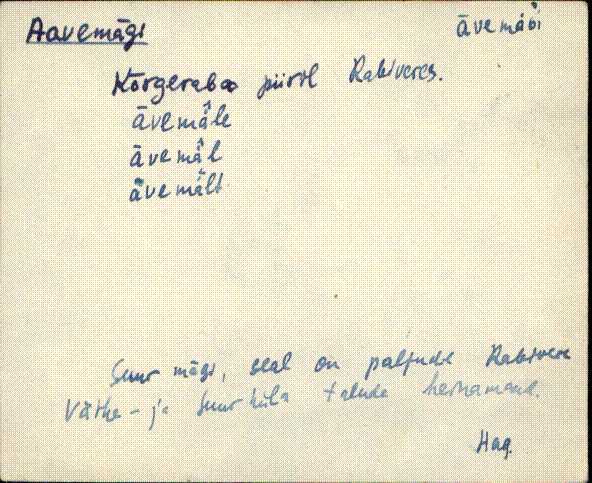 Aavemägi
āvemäGi
Kõrgeraba piiril Rabiveres.
āvemäle
āvemäl
āvemält
Suur mägi, seal on paljude Rabivere
Väike- ja Suurküla talude heinamaad.
Hag.